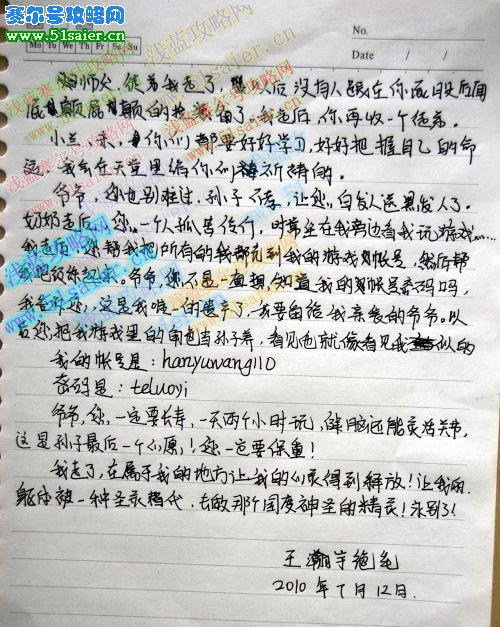 赛尔号攻略网
www.51saier.cn
No.
Mo Tu We Th Fr Sa Su
Date / /
师父，徒弟我走了，以后没有人跟在你屁股后面
屁颠屁颠的了，我走后你再收一个徒弟。
你们都要好好学习，好好把握自己的命
运，我会在天堂里给你们祈祷的。
爷爷，您也别难过，孙子不孝，让您白发人送黑发人了。
奶奶走后，您一个人孤苦伶仃，时常坐在我旁边看我玩游戏……
我走后，您帮我把所有的钱都充到我的游戏帐号，然后帮
我把级练起来。爷爷，您不是一直想知道我的帐号密码吗，
我告诉您，这是我唯一的遗产了，我要留给我亲爱的爷爷。以
后您把我游戏里的角色当孙子养，看见他就像看见我似的
我的帐号是：hanyuwang110
密码是：teluoyi
爷爷，您一定要长寿，一天两个小时玩，健脑还能灵活关节，
这是孙子最后一个心愿，您一定要保重！
我走了，在属于我的地方让我的心灵得到释放！让我的
躯体被一种圣灵替代，去做那个国度神圣的精灵！永别了！
王瀚宇绝笔
2010年7月12日.